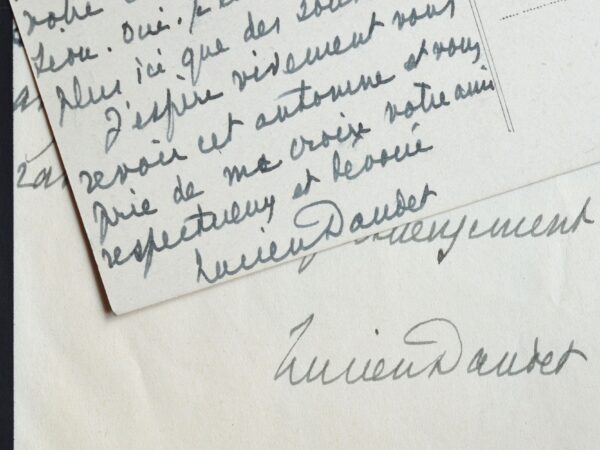 votre
Léon. Oui.
plus ici que des
J'espère vivement vous
revoir cet automne et vous
prie de me croire votre ami
respectueux et dévoué
Lucien Daudet
Lucien Daudet